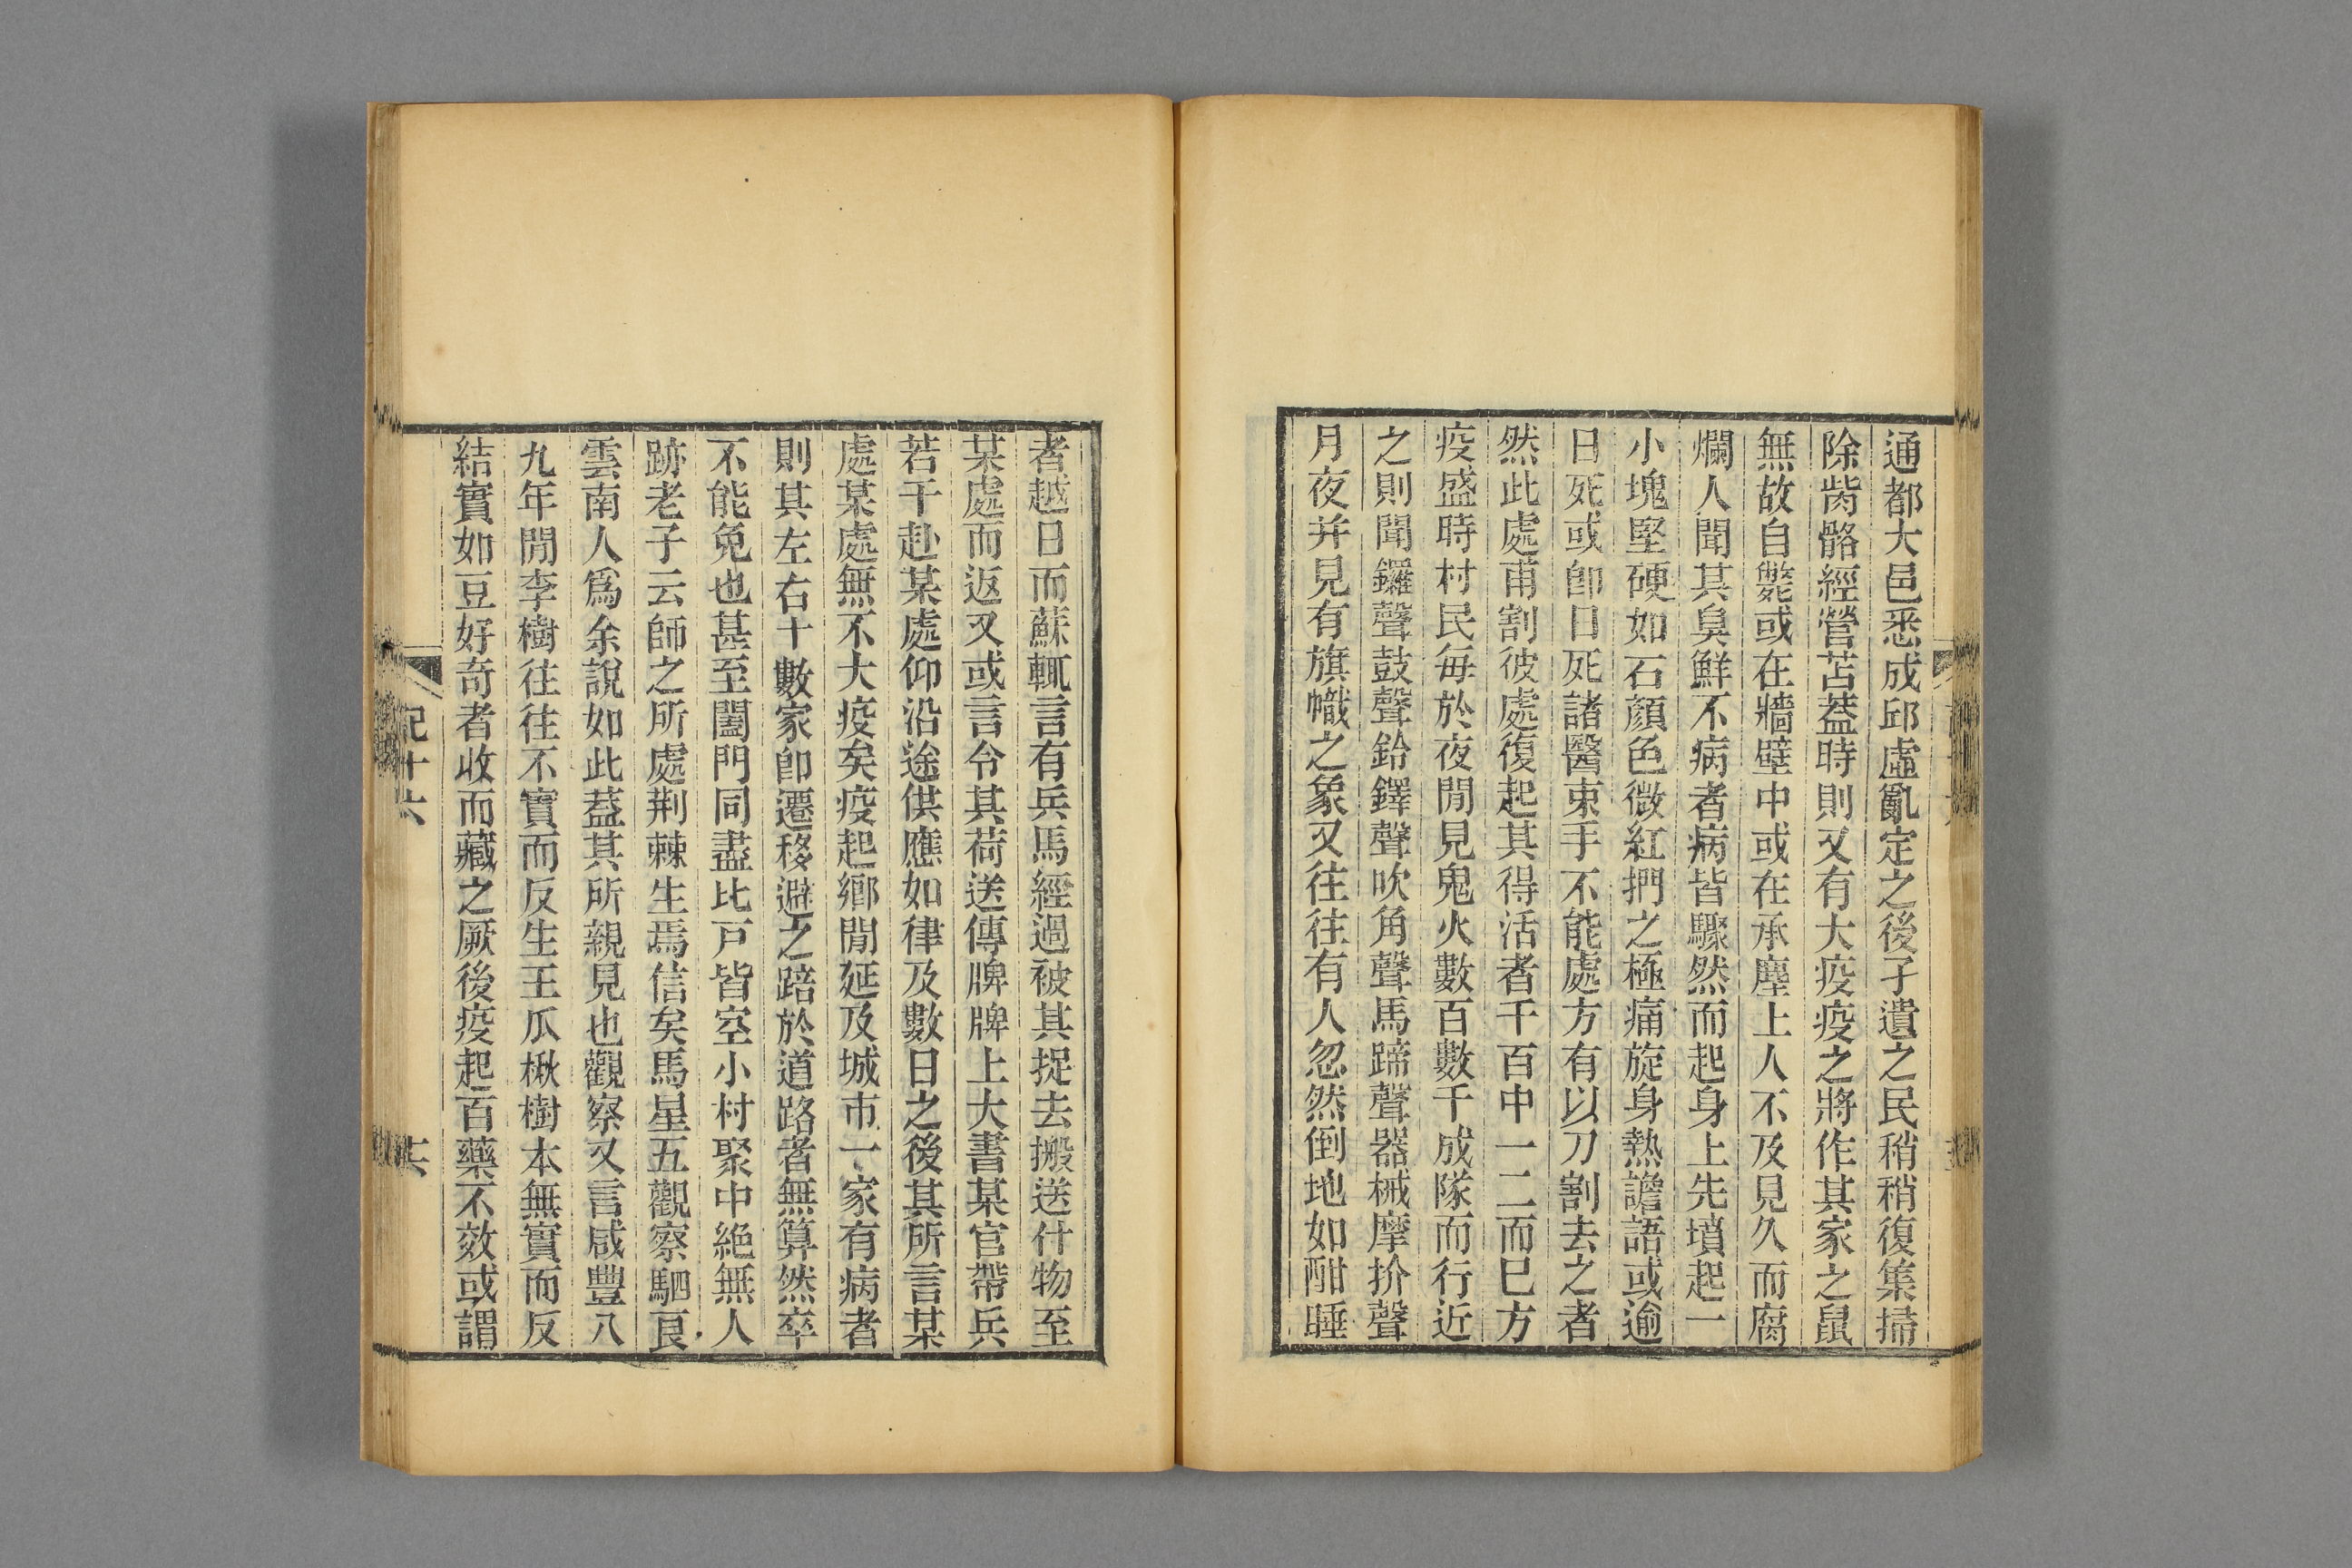 通都大邑悉成邱虛亂定之後孑遺之民稍稍復集掃
除胔骼經營苫葢時則又有大疫疫之將作其家之鼠
無故自斃或在牆壁中或在承塵上人不及見久而腐
爛人聞其臭鮮不病者病皆驟然而起身上先墳起一
小塊堅硬如石顏色微紅捫之極痛旋身熱譫語或逾
日死或卽日死諸醫束手不能處方有以刀割去之者
然此處甫割彼處復起其得活者千百中一二而已方
疫盛時村民每於夜閒見鬼火數百數千成隊而行近
之則聞鑼聲鼓聲鈴鐸聲吹角聲馬蹄聲器械摩扴聲
月夜并見有旗幟之象又往往有人忽然倒地如酣睡
者越日而蘇輒言有兵馬經過被其捉去搬送什物至
某處而返又或言令其荷送傳牌牌上大書某官帶兵
若干赴某處仰沿途供應如律及數日之後其所言某
處某處無不大疫矣疫起鄉閒延及城市一家有病者
則其左右十數家卽遷移避之踣於道路者無算然卒
不能免也甚至闔門同盡比戸皆空小村聚中絕無人
跡老子云師之所處荆棘生焉信矣馬星五觀察駟良
雲南人爲余說如此葢其所親見也觀察又言咸豐八
九年閒李樹往往不實而反生王瓜楸樹本無實而反
結實如豆好奇者收而藏之厥後疫起百藥不效或謂
紀十六